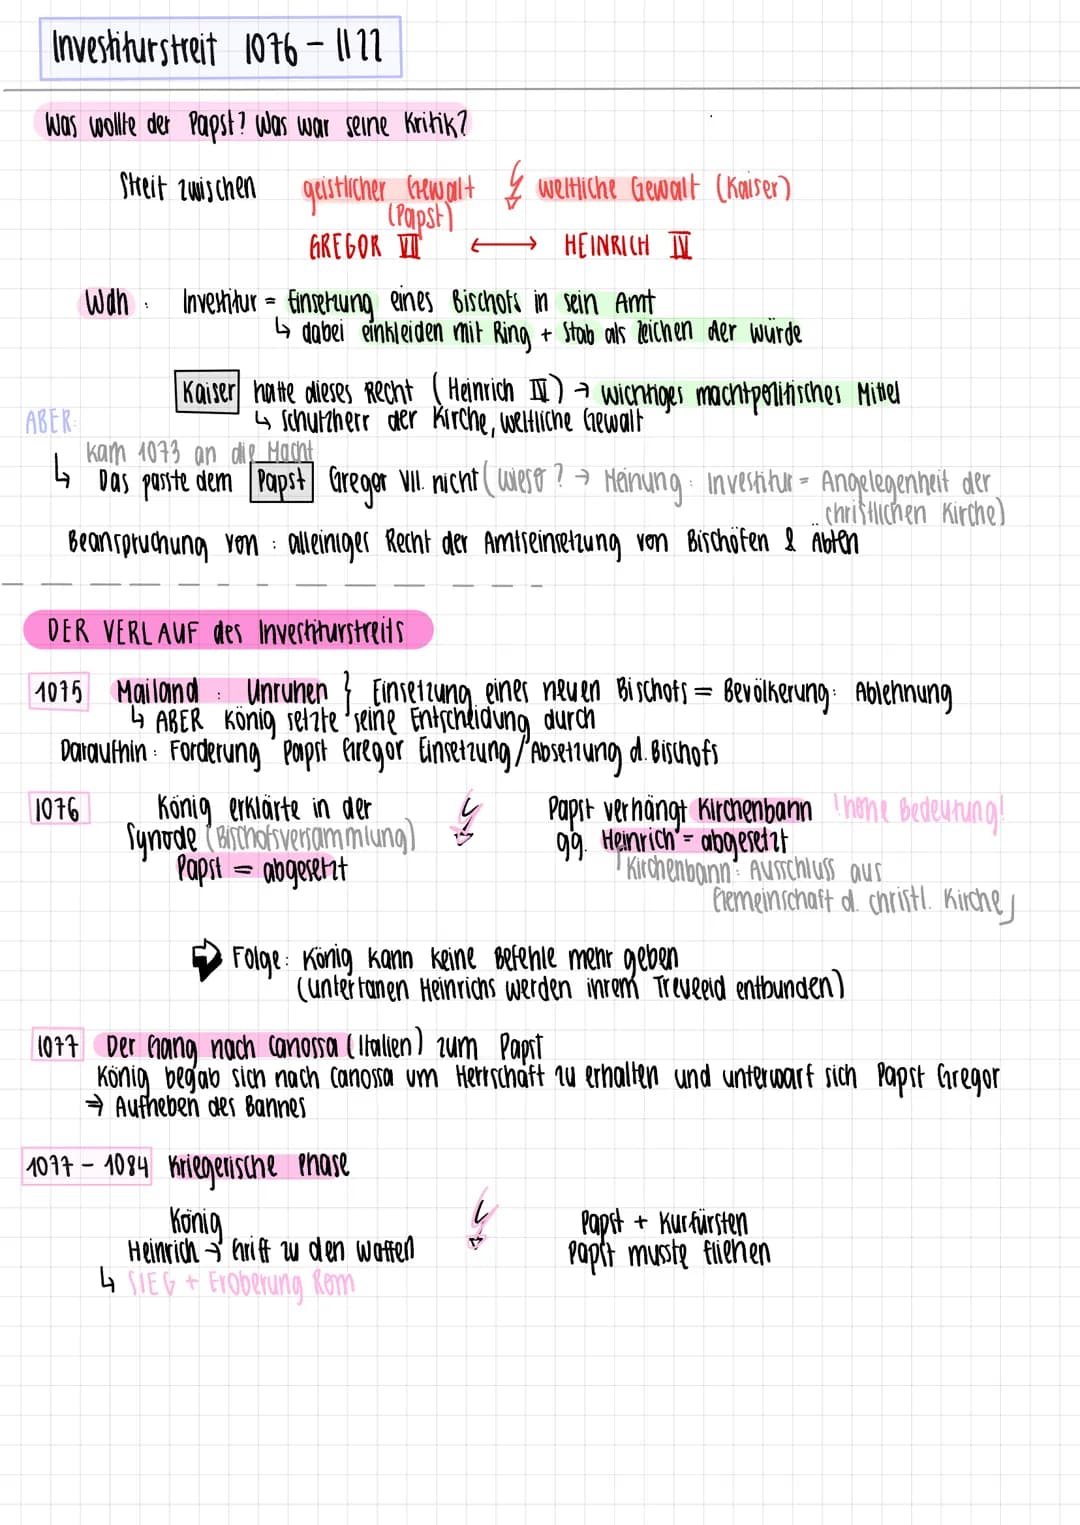 Investiturstreit 1076 - 1122
Was wollte der Papst? Was war seine Kritik?
Streit zwischen geistlicher Gewalt weltliche Gewalt (Kaiser)
(Papst)
GREGOR VII ⟷ HEINRICH IV
Wdh : Investitur = Einsetzung eines Bischofs in sein Amt
↳ dabei einkleiden mit Ring + Stab als Zeichen der Würde
Kaiser hatte dieses Recht (Heinrich IV) → wichtiges machtpolitisches Mittel
↳ Schutzherr der Kirche, weltliche Gewalt
ABER:
kam 1073 an die Macht
↳ Das passte dem Papst Gregor VII. nicht (wieso? → Meinung: Investitur = Angelegenheit der
christlichen Kirche)
Beanspruchung von : alleiniges Recht der Amtseinsetzung von Bischöfen & Äbten
DER VERLAUF des Investiturstreits
1075 Mailand : Unruhen } Einsetzung eines neuen Bischofs = Bevölkerung: Ablehnung
↳ ABER König setzte seine Entscheidung durch
Daraufhin : Forderung Papst Gregor Einsetzung / Absetzung d. Bischofs
1076 König erklärte in der Papst verhängt Kirchenbann !hohe Bedeutung!
Synode (Bischofsversammlung) gg. Heinrich = abgesetzt
Papst = abgesetzt Kirchenbann: Ausschluss aus
Gemeinschaft d. christl. Kirche
➩ Folge: König kann keine Befehle mehr geben
(untertanen Heinrichs werden ihrem Treueeid entbunden)
1077 Der Gang nach Canossa (Italien) zum Papst
König begab sich nach Canossa um Herrschaft zu erhalten und unterwarf sich Papst Gregor
⇒ Aufheben des Bannes
1077 - 1084 Kriegerische Phase
König Papst + Kurfürsten
Heinrich → Griff zu den Waffen Papst musste fliehen
↳ SIEG + Eroberung Rom